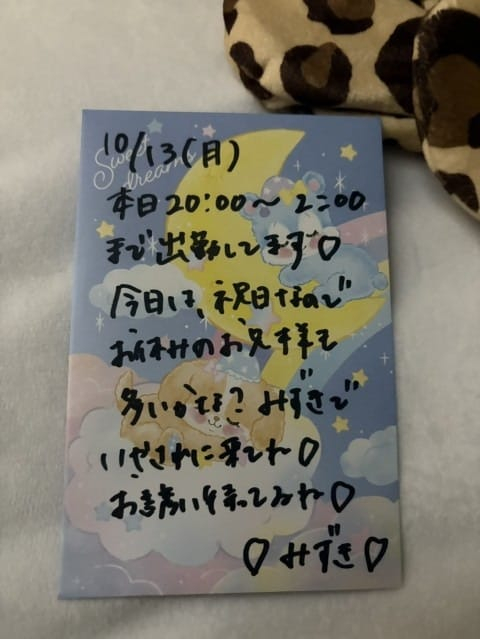 Sweet
dreams
10/13(月)
本日20:00〜2:00
まで出勤してます♡
今日は、祝日なので
お休みのお兄様も
多いかな？みずきで
いやされに来てね♡
お誘い待ってるね♡
♡みずき♡